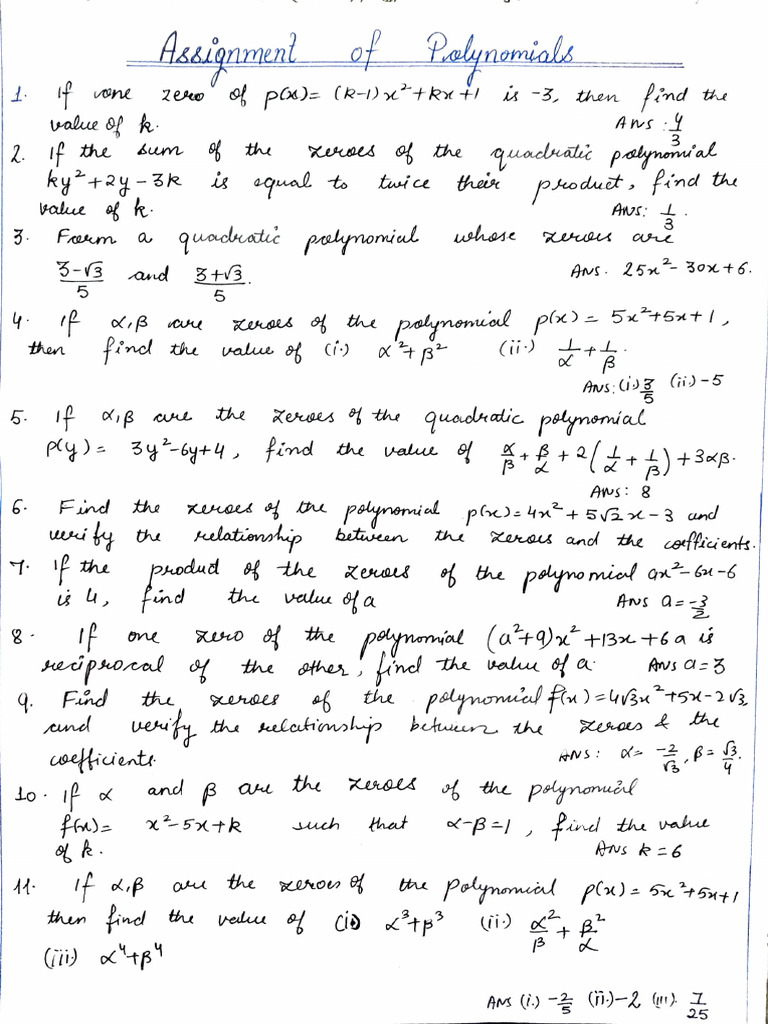 Assignment of Polynomials
1. If one zero of p(x)= (k-1)x²+kx+1 is -3, then find the
value of k. ANS : 4/3
2. If the sum of the zeroes of the quadratic polynomial
ky²+2y-3k is equal to twice their product, find the
value of k. ANS: 1/3.
3. Form a quadratic polynomial whose zeroes are
(3-√3)/5 and (3+√3)/5. ANS. 25x²-30x+6.
4. If α,β are zeroes of the polynomial p(x) = 5x²+5x+1,
then find the value of (i.) α²+β² (ii.) 1/α + 1/β.
ANS: (i.) 3/5 (ii.) -5
5. If α,β are the zeroes of the quadratic polynomial
p(y) = 3y²-6y+4, find the value of α/β + β/α + 2(1/α + 1/β) + 3αβ.
ANS: 8
6. Find the zeroes of the polynomial p(x)=4x²+5√2x-3 and
verify the relationship between the zeroes and the coefficients.
7. If the product of the zeroes of the polynomial ax²-6x-6
is 4, find the value of a ANS a = -3/2
8. If one zero of the polynomial (a²+9)x²+13x+6a is
reciprocal of the other, find the value of a. ANS a=3
9. Find the zeroes of the polynomial f(x)=4√3x²+5x-2√3,
and verify the relationship between the zeroes & the
coefficients. ANS: α= -2/√3, β= √3/4.
10. If α and β are the zeroes of the polynomial
f(x)= x²-5x+k such that α-β=1, find the value
of k. ANS k=6
11. If α,β are the zeroes of the polynomial p(x)=5x²+5x+1
then find the value of (i) α³+β³ (ii.) α²/β + β²/α
(iii.) α⁴+β⁴
ANS (i.) -2/5 (ii.)-2 (iii). 7/25